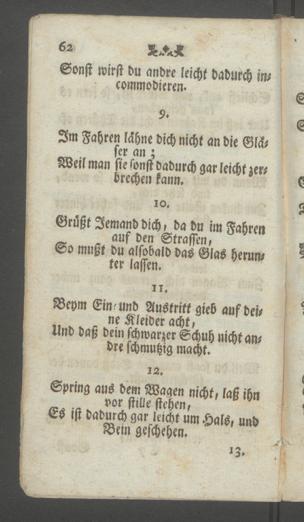 62
Sonst wirst du andre leicht dadurch in-
commodieren.
9.
Im Fahren lähne dich nicht an die Glä-
ser an;
Weil man sie sonst dadurch gar leicht zer-
brechen kann.
10.
Grüßt Jemand dich, da du im Fahren
auf den Strassen,
So mußt du alsobald das Glas herun-
ter lassen.
11.
Beym Ein- und Austritt gieb auf dei-
ne Kleider acht,
Und daß dein schwarzer Schuh nicht an-
dre schmutzig macht.
12.
Spring aus dem Wagen nicht, laß ihn
vor stille stehen,
Es ist dadurch gar leicht um Hals, und
Bein geschehen.
13.